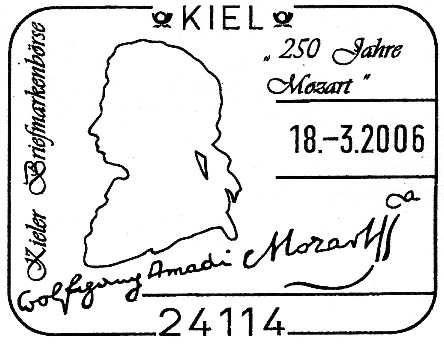 KIEL
„ 250 Jahre
Mozart "
Kieler Briefmarkenbörse
18.–3.2006
Wolfgang Amadé Mozart
24114